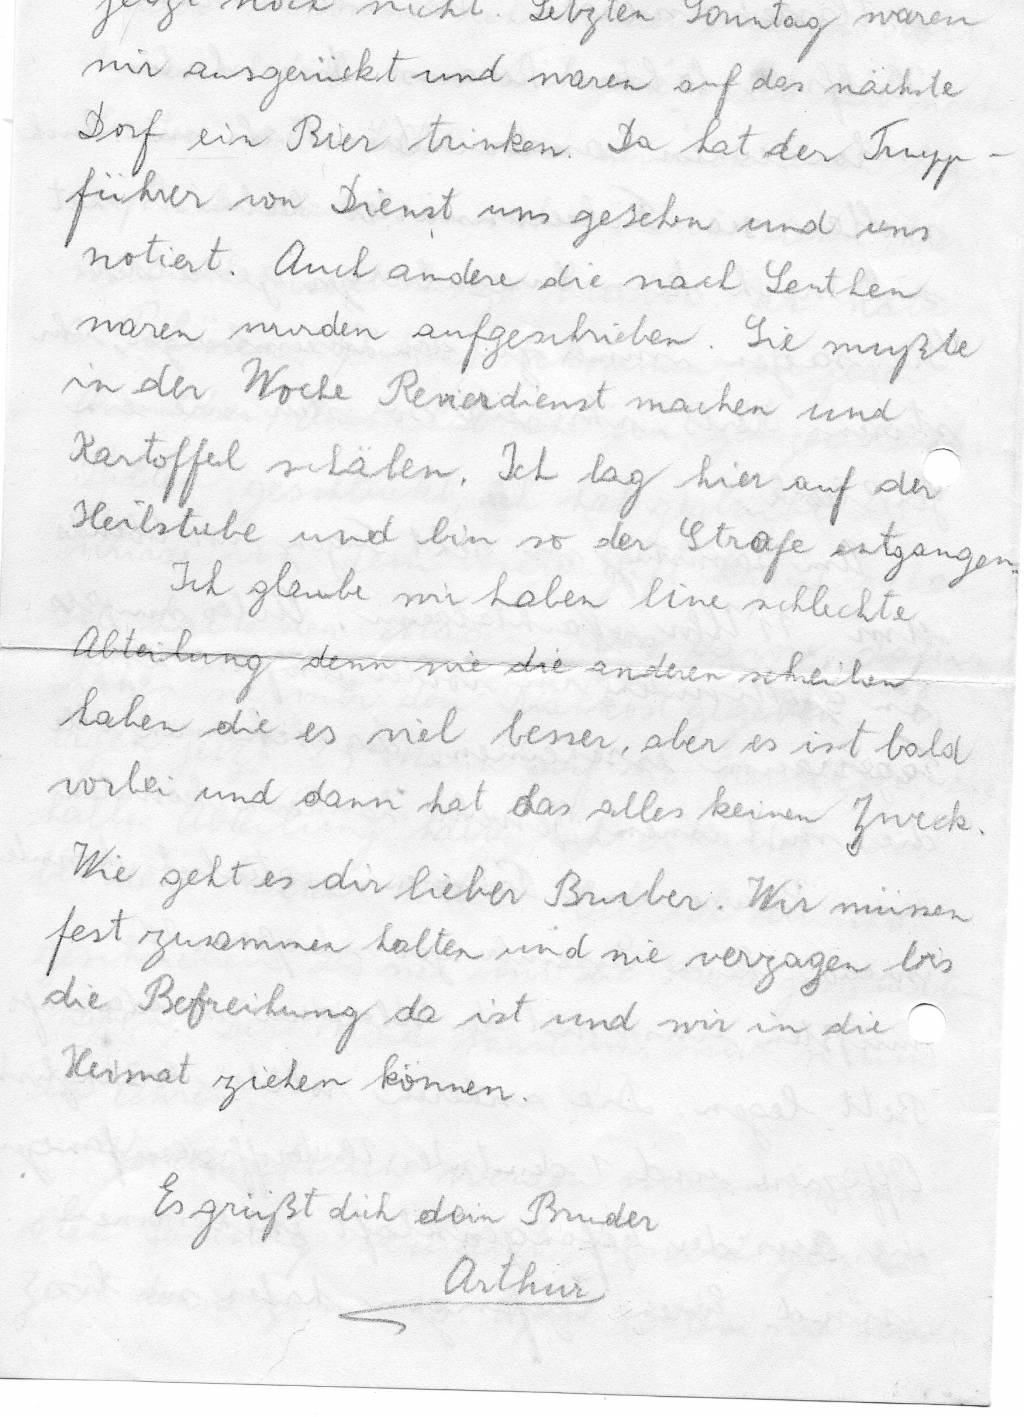 jetzt noch nicht. Letzten Sonntag waren
wir ausgerückt und waren auf das nächste
Dorf ein Bier trinken. Da hat der Trupp-
führer von Dienst uns gesehen und uns
notiert. Auch andere die nach Leuthen
waren wurden aufgeschrieben. Sie mußte
in der Woche Revierdienst machen und
Kartoffel schälen. Ich lag hier auf der
Heilstube und bin so der Strafe entgangen.
Ich glaube wir haben eine schlechte
Abteilung denn wie die anderen schreiben
haben die es viel besser, aber es ist bald
vorbei und dann hat das alles keinen Zweck.
Wie geht es dir lieber Bruber. Wir müssen
fest zusammen halten und nie verzagen bis
die Befreihung da ist und wir in die
Heimat ziehen können.
Es grüßt dich dein Bruder
Arthur